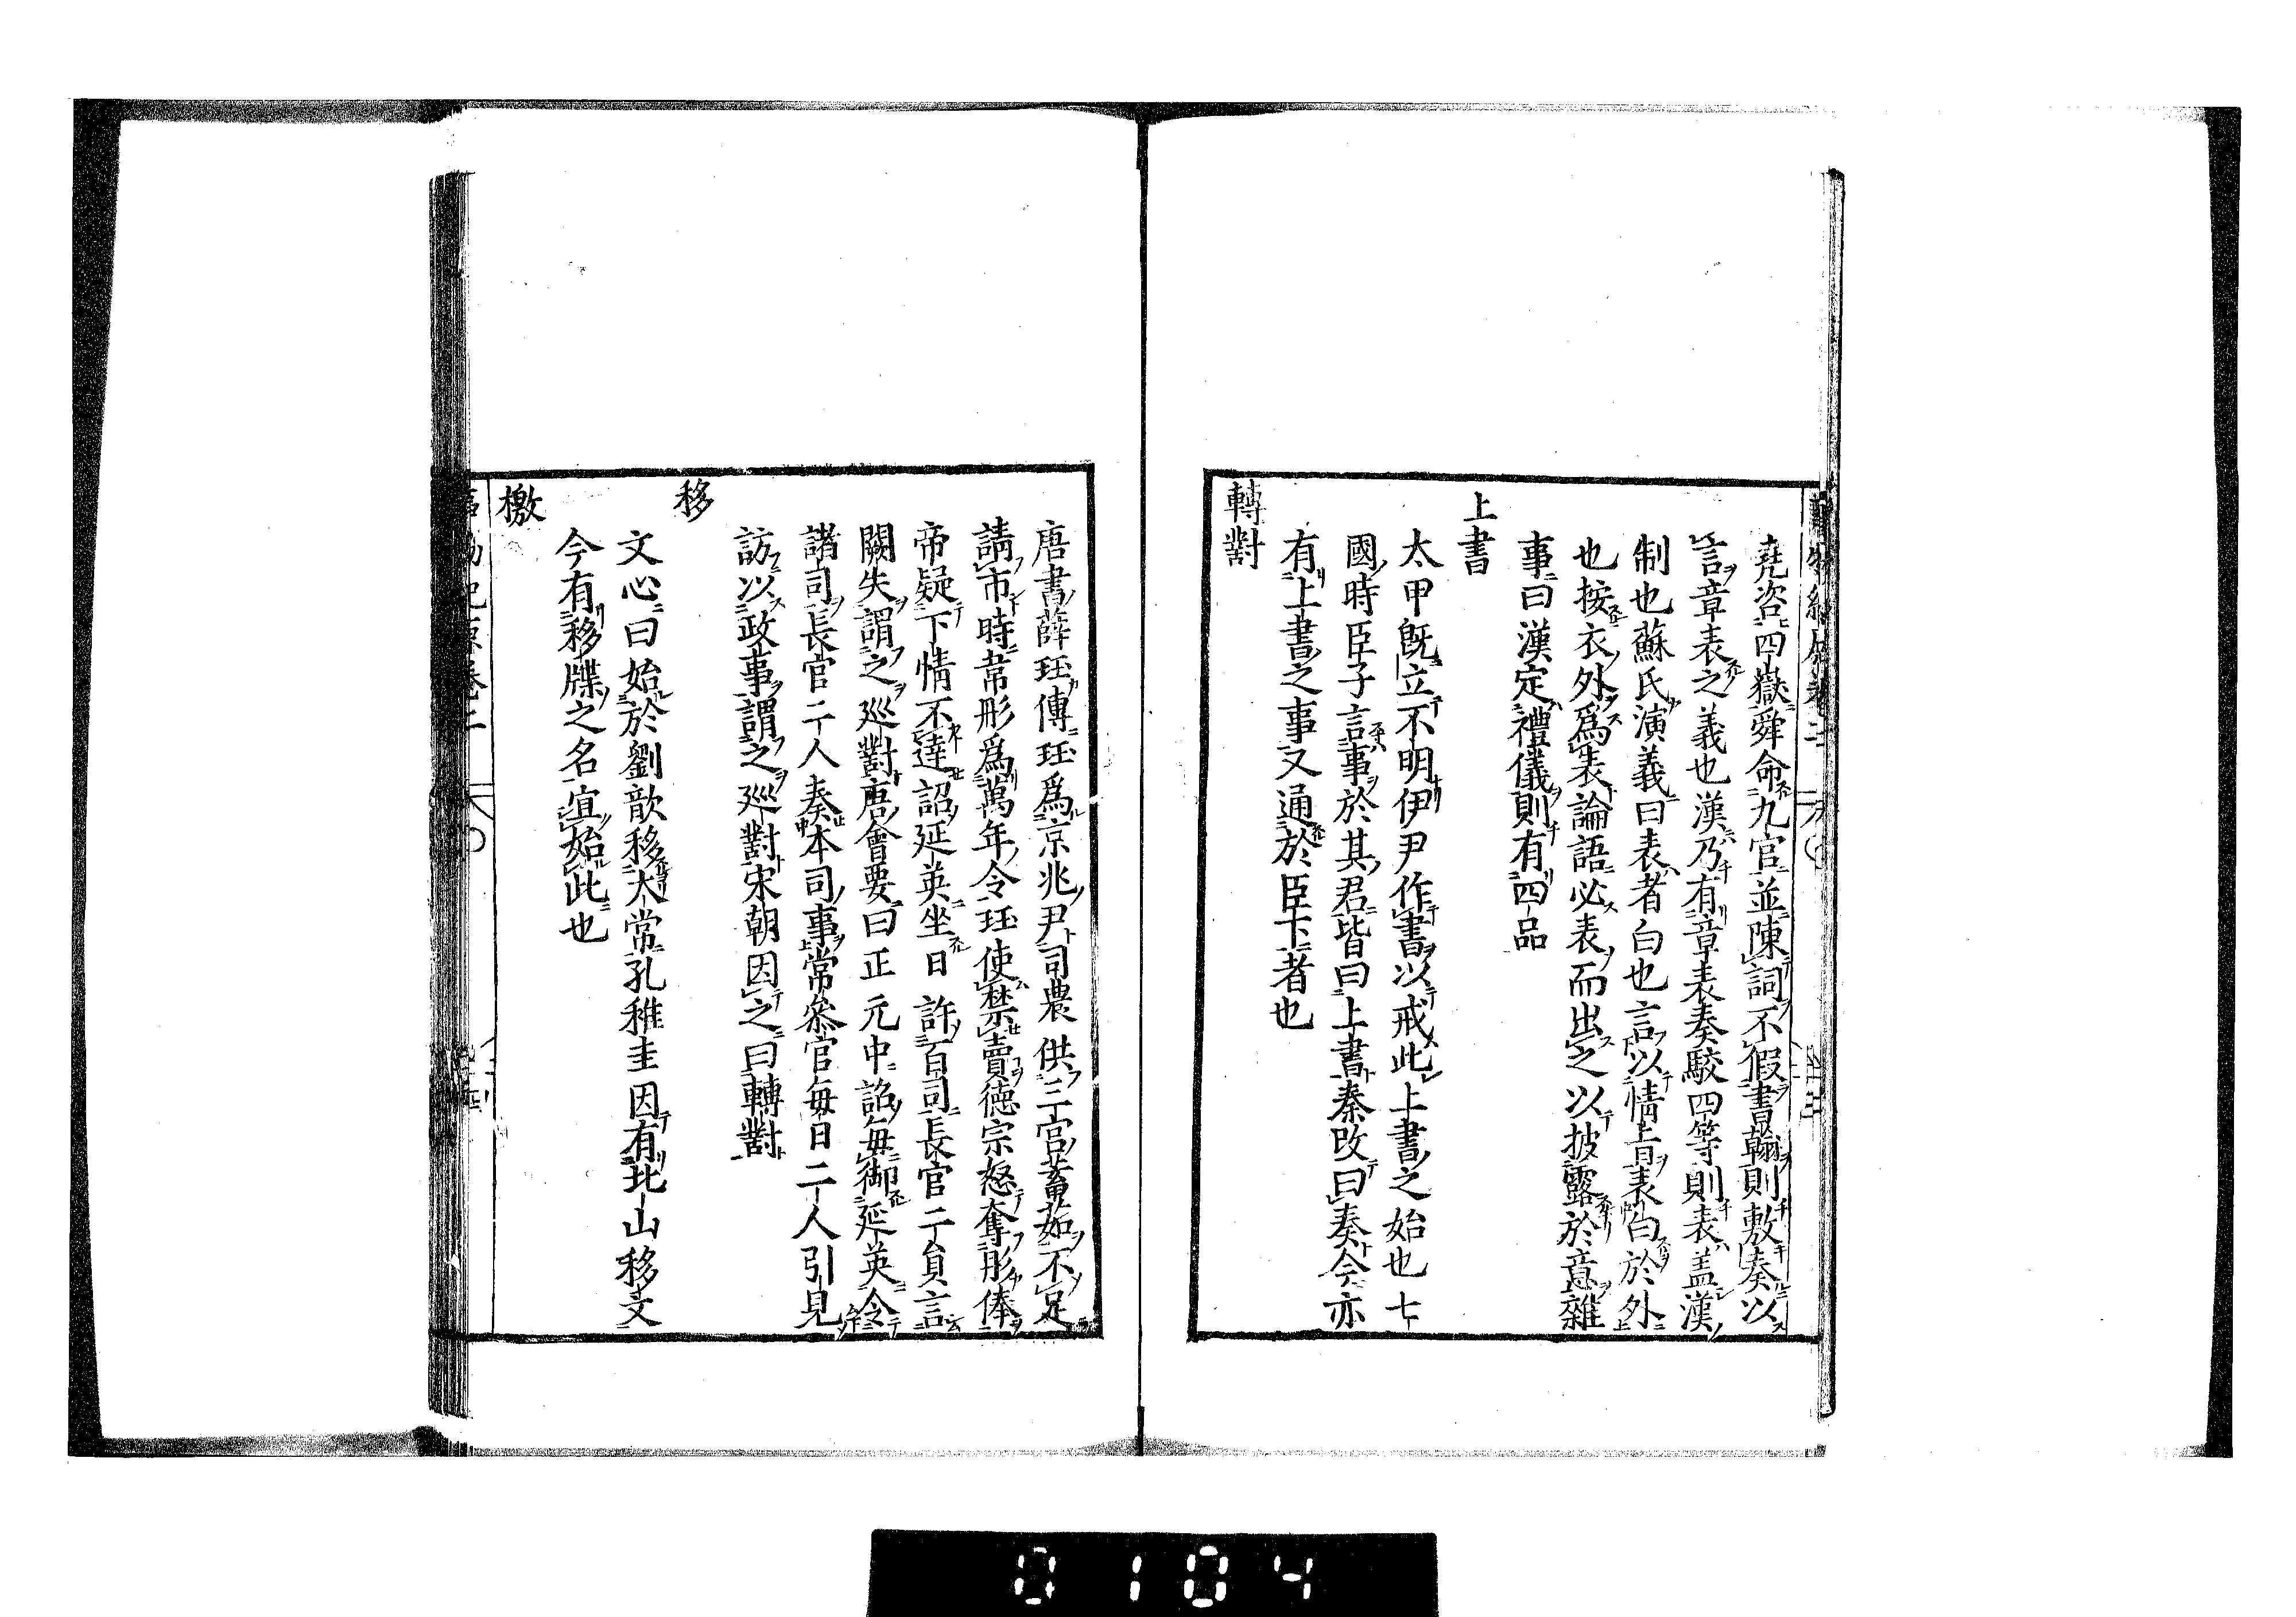 堯咨四嶽舜命九官並陳詞不假書翰則敷奏以
言章表之義也漢乃有章表奏駮四等則表盖漢
制也蘇氏演義曰表者白也言以情旨表白於外
也按衣外爲表論語必表而出之以披露於意雜
事曰漢定禮儀則有四品
上書
太甲旣立不明伊尹作書以戒此上書之始也七
國時臣子言事於其君皆曰上書秦改曰奏今亦
有上書之事又通於臣下者也
轉對
唐書薛珏傳珏爲京兆尹司農供三宮蓄茹不足
請市時韋彤爲萬年令珏使禁賣德宗怒奪彤俸
帝疑下情不達詔延英坐日許百司長官二貟言
闕失謂之巡對唐會要曰正元中詔每御延英令
諸司長官二人奏本司事常叅官每日二人引見
訪以政事謂之巡對宋朝因之曰轉對
移
文心曰始於劉歆移太常孔稚圭因有北山移文
今有移牒之名宜始此也
檄
事物紀原卷二
0104